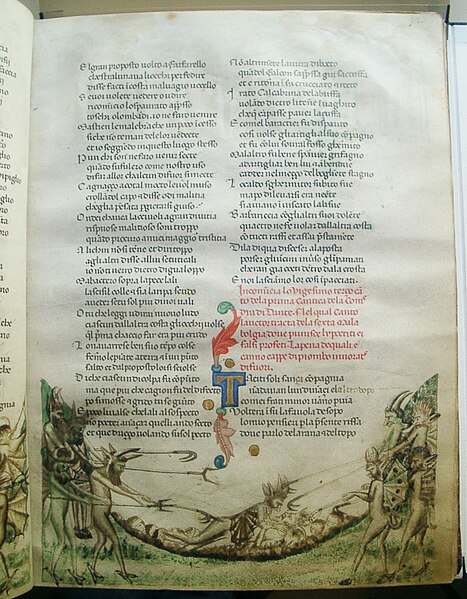 E l gran proposto volto a farfarello
che stralunava liocchi per fedire
disse facti costa malvagio uccello
S e voi volete vedere o udire
ricomincio lospaurato apresso
toschi olombardi. io ne faro venire
M a stien lemalebranche un poco in cesso
siche ei no teman delelor vendecte
et io seggiendo inquesto luogo stesso
P un chi son ne faro venir septe
quado sufulero come nostro uso
di far allor che alcun di fuor si mecte
C agnazzo acotal motto levol muso
crollandol capo e disse odi malitia
chegli a pensata per gittarsi giuso
O nde ei chavea lacciuoli agran divitia
rispuose malitioso son troppo
quado procuro amiei maggio tristitia
A lichin no si tene et di rintoppo
agli altri disse allui se tu ti cali
io no ti verro dietro di gualoppo
M a battero sopra lapece lali
lascisil colle e sia laripa scudo
aveder se tu sol piu di noi vali
O tu che leggi udirai nuovo ludo
ciascun dallaltra costa gliocchi volse
ql prima chaccio far era piu crudo
L o navarrese ben suo tempo colse
fermo le piante aterra e i un puto
salto et dal proposto lor si sciolse
D i che ciascun di colpo fu
ma que piu che cagion fu del difecto
pero si mosse e grido tu se giuto
M a poco valse che lali al sospecto
no potero avanzar quelli ando socto
et que volando suso pecto
N o altrimete lanitra di bocto
quadol falcon sappssa giu sactuffa
et e ritorna su crucciato e rocto
I rato calcabrina dela buffa
volado dietro litene invaghito
che campasse paver la zuffa
E comel barattier fu disparito
cosi volse gli artigli al suo copagno
et fu co lui sovral fosso ghermito
M a laltro fu bene sparvier grifagno
ad artigliar ben lui e ambedue
cadder nel mezzo del bogliete stagno
L o caldo sghermitor subito fue
ma po di levarsi era neete
si aviano inviscato lali sue
B arbariccia cogli altri suoi dolete
quactro ne fe volar dallaltra costa
co tucti raffi et assai pstamete
D i la di qua discesero ala posta
porser gliuncini verso gli impaniati
cheran gia cocti detro dala crosta
E noi lasciamo lor cosi ipacciati.
Incomicia lo vigesimo terzo canto
dela prima Cantica dela Come
dia di Dante. Nel qual Canto
lauctore tracta dela sexta
bolgia dove punisce lypocriti e
falsi La pena dequali e
canno cappe di piombo
di fuori.
T aciti soli sanza copagnia
nadavam lun dinaci elaltro dopo
come i frati minori vano p via
V olto era i su la favola desopo
lo mio pensier p la psente rissa
dove parlo dela rana e del topo